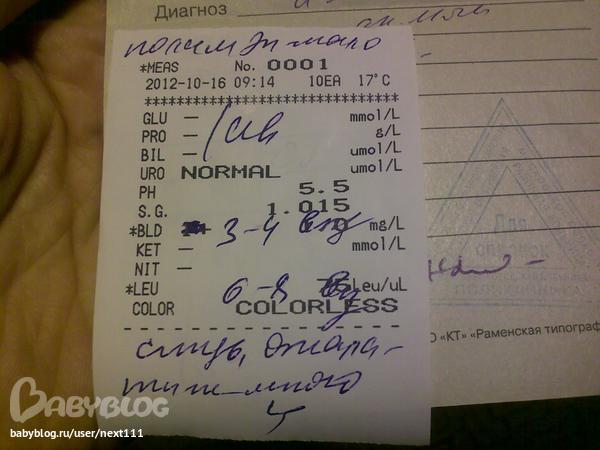 Диагноз
ан. мочи
полим эп-мало
*MEAS No. 0001
2012-10-16 09:14 10EA 17°C
*******************************
GLU – mmol/L
PRO – g/L
BIL – umol/L
URO NORMAL umol/L
PH 5.5
S.G. 1.015
*BLD 3-4 mg/L
KET – mmol/L
NIT –
*LEU 6-8 Leu/uL
COLOR COLORLESS
слизь,
много
О «КТ» "Раменская типограф
BABYBLOG
babyblog.ru/user/next111